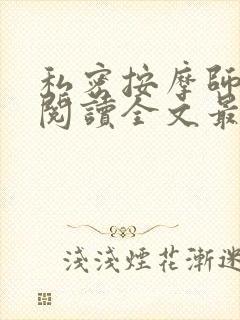 私密按摩師
閱讀全文最
淺淺煙花漸迷